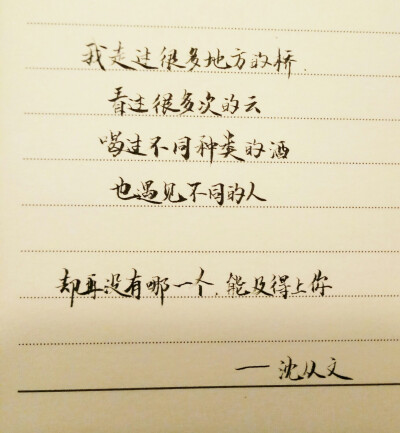 我走过很多地方的桥.
看过很多次的云
喝过不同种类的酒
也遇见不同的人
却再没有哪一个.能及得上你
—沈从文